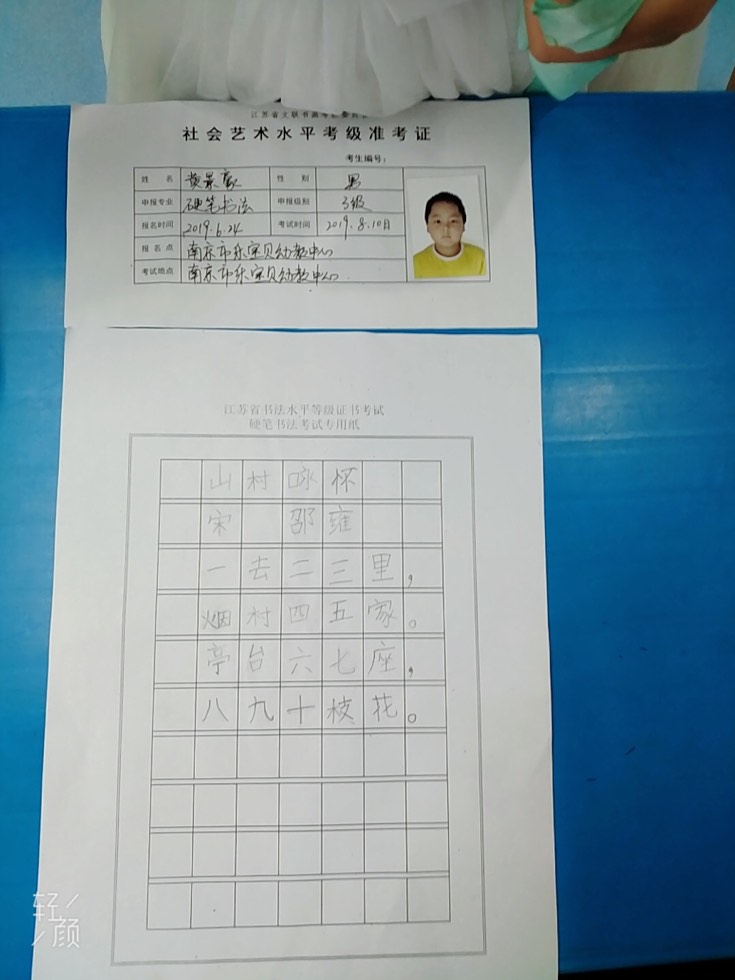 江苏省文联书画考级委员会
社会艺术水平考级准考证
考生编号：
姓名 黄景豪 性别 男
申报专业 硬笔书法 申报级别 3级
报名时间 2019.6.24 考试时间 2019.8.10日
报名点 南京市乐宝贝幼教中心
考试地点 南京市乐宝贝幼教中心
江苏省书法水平等级证书考试
硬笔书法考试专用纸
山村咏怀
宋 邵雍
一去二三里，
烟村四五家。
亭台六七座，
八九十枝花。
轻颜